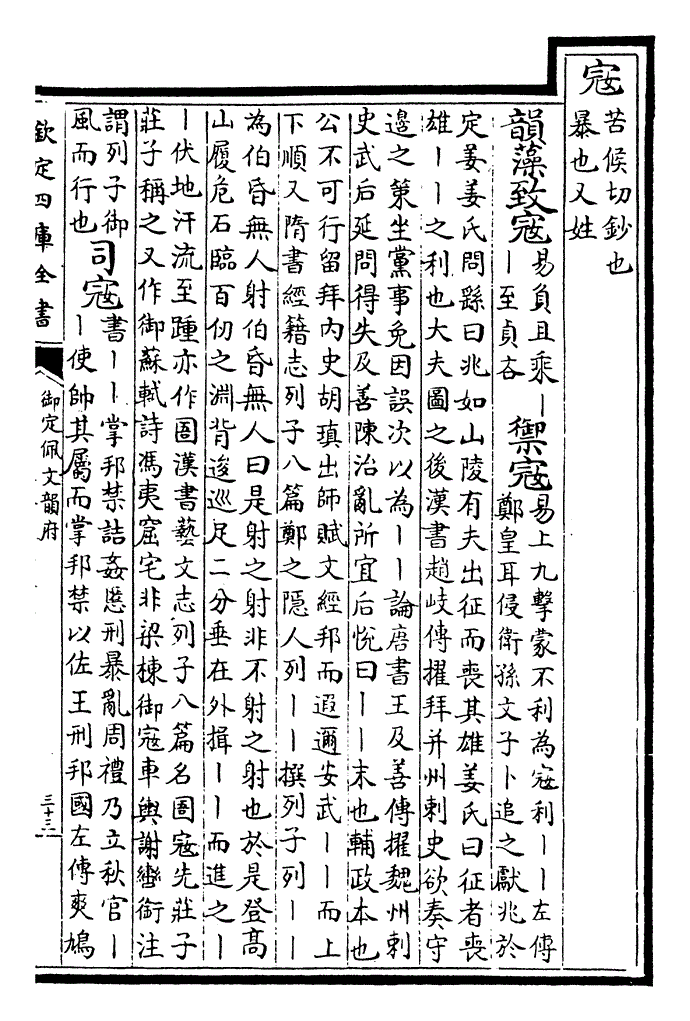 寇
苦候切鈔也
暴也又姓
韻藻致寇
易負且乘丨
丨至貞吝
禦寇
易上九擊蒙不利為寇利丨丨左傳
鄭皇耳侵衛孫文子卜追之獻兆於
定姜姜氏問繇曰兆如山陵有夫出征而喪其雄姜氏曰征者喪
雄丨丨之利也大夫圖之後漢書趙岐傳擢拜并州刺史欲奏守
邊之策坐黨事免因誤次以為丨丨論唐書王及善傳擢魏州刺
史武后延問得失及善陳治亂所宜后悅曰丨丨末也輔政本也
公不可行留拜内史胡瑱出師賦文經邦而遐邇安武丨丨而上
下順又隋書經籍志列子八篇鄭之隱人列丨丨撰列子列丨丨
為伯昏無人射伯昏無人曰是射之射非不射之射也於是登髙
山履危石臨百仞之淵背逡巡足二分垂在外揖丨丨而進之丨
丨伏地汗流至踵亦作圄漢書藝文志列子八篇名圄寇先莊子
莊子稱之又作御蘇軾詩馮夷窟宅非梁棟御寇車輿謝轡銜注
謂列子御
風而行也
司寇
書丨丨掌邦禁詰姦慝刑暴亂周禮乃立秋官丨
丨使帥其屬而掌邦禁以佐王刑邦國左傳爽鳩
欽定四庫全書
御定佩文韻府
三十三